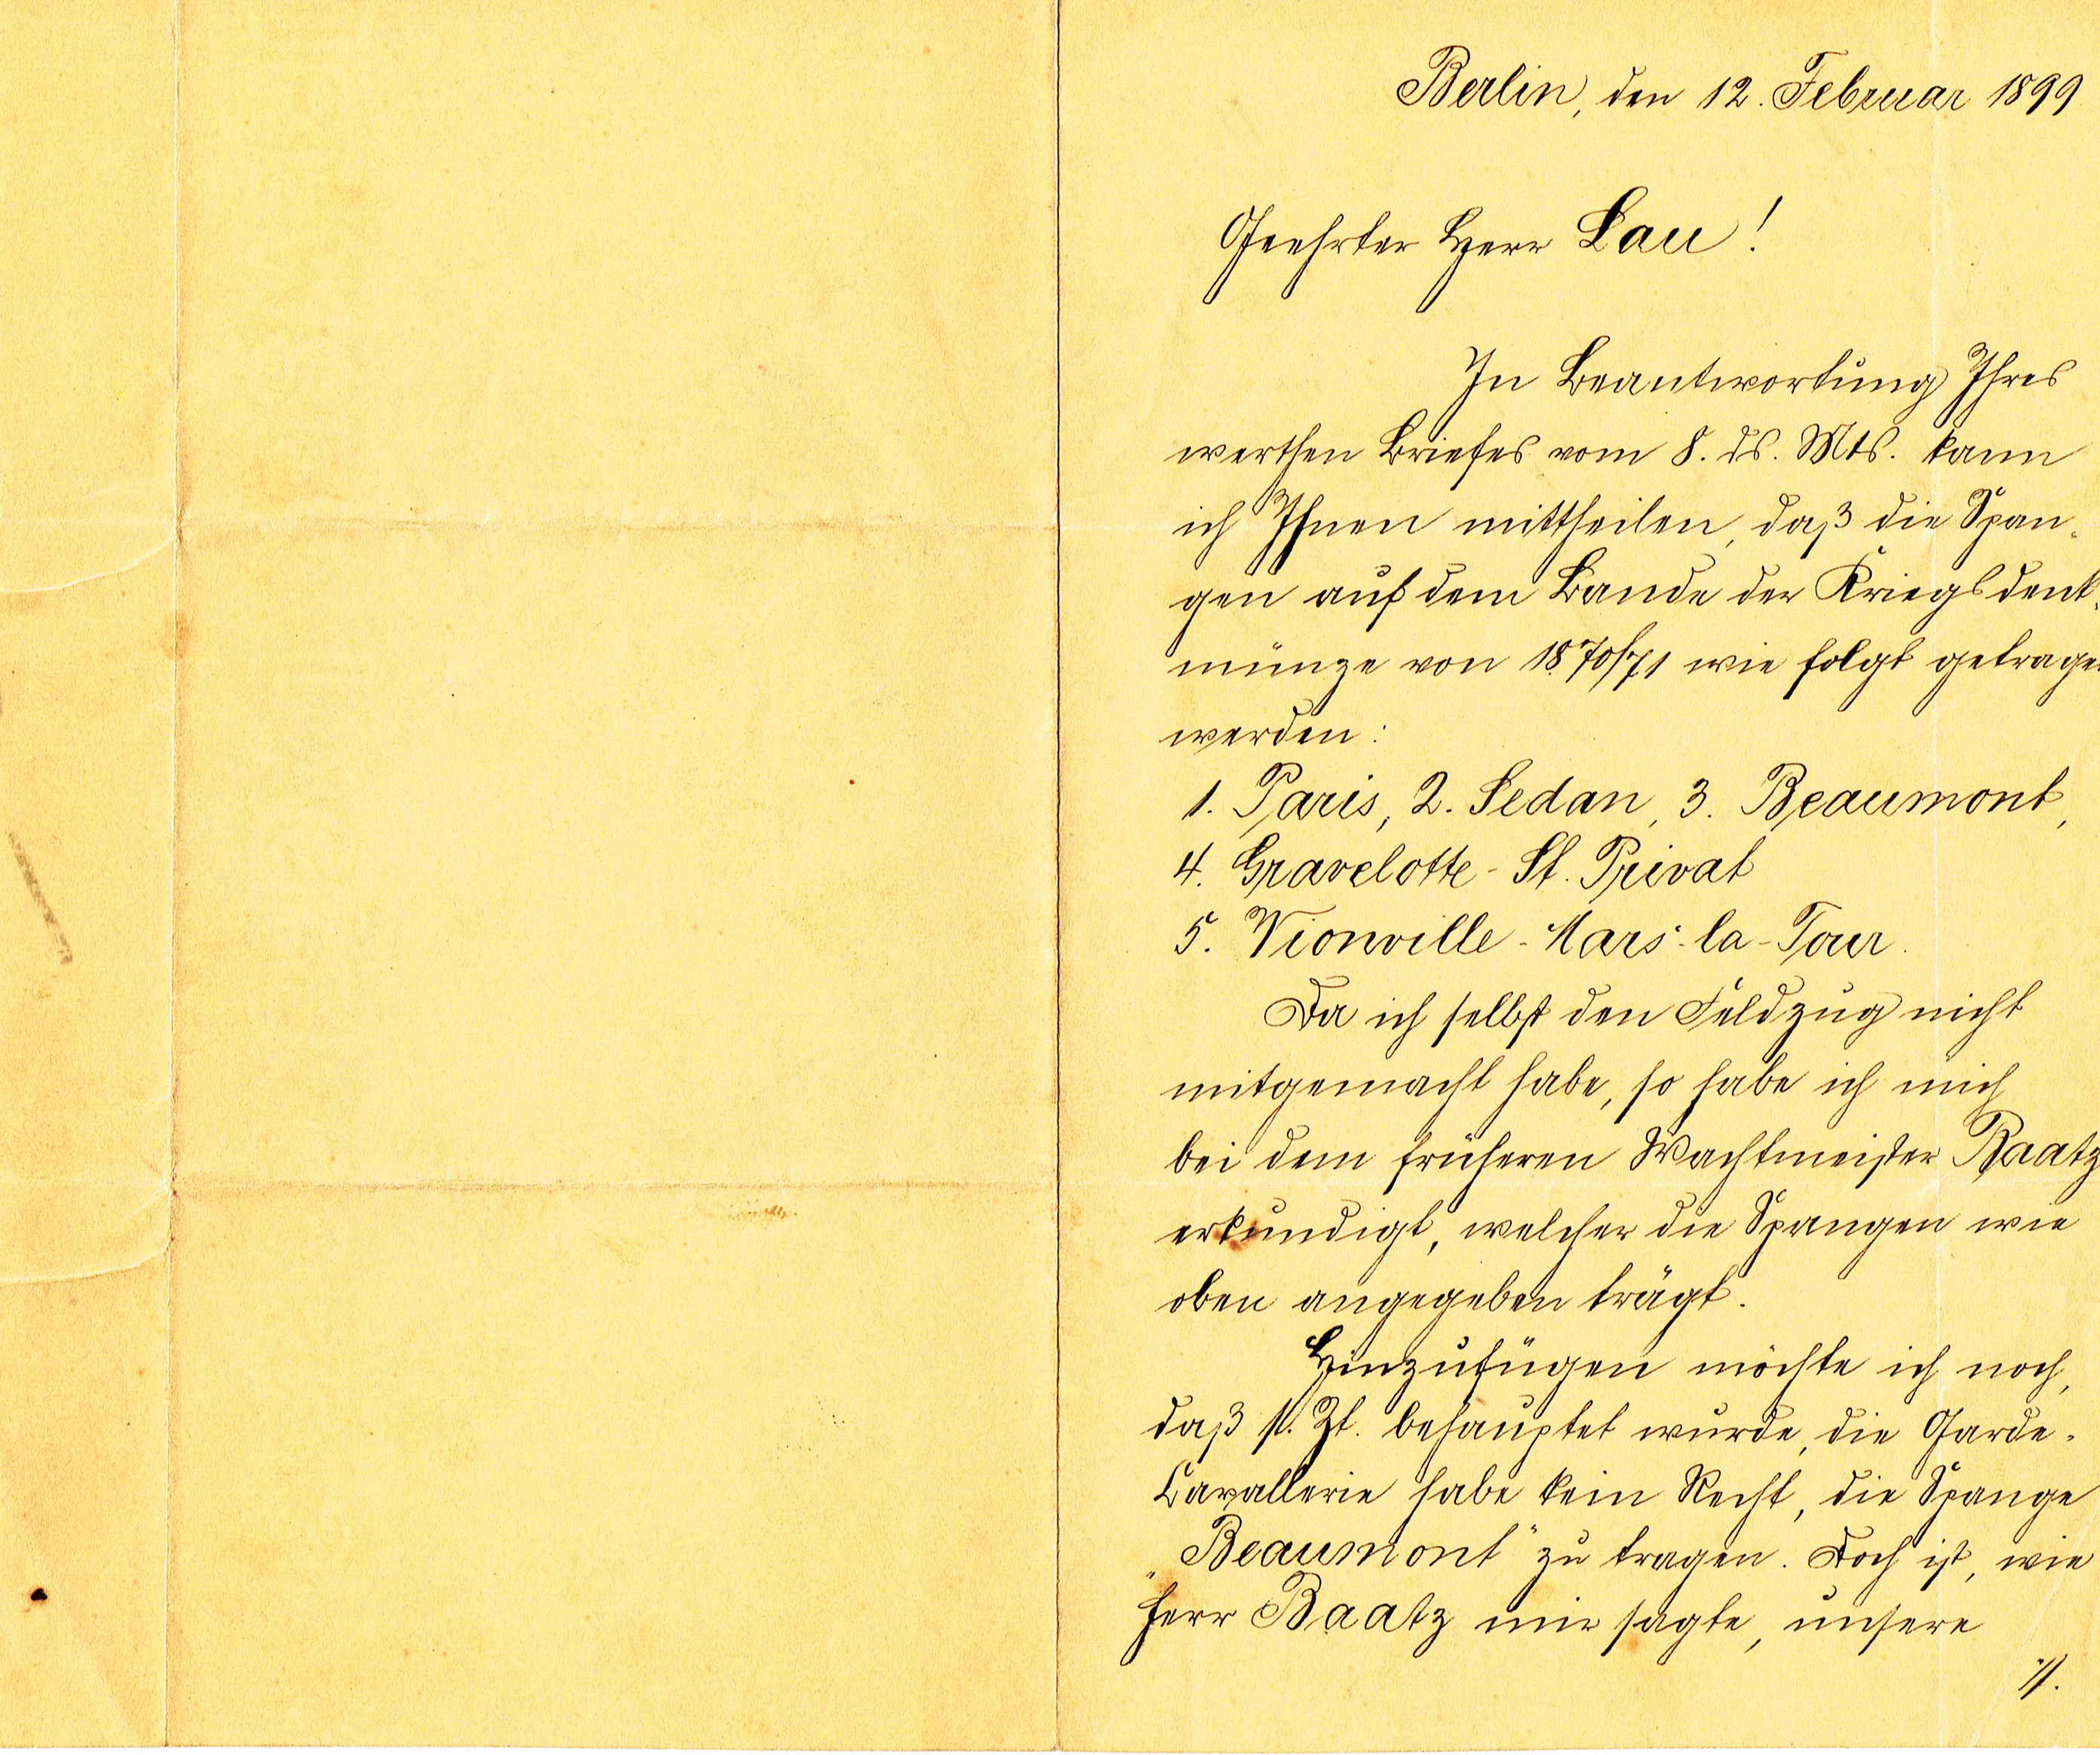 Berlin, den 12. Februar 1899
Geehrter Herr Lau!
In Beantwortung Ihres
werthen Briefes vom 8. ds. Mts. kann
ich Ihnen mittheilen, daß die Span-
gen auf dem Bande der Kriegsdenk-
münze von 1870/71 wie folgt getragen
werden:
1. Paris, 2. Sedan, 3. Beaumont,
4. Gravelotte - St. Privat
5. Vionville - Mars-la-Tour.
Da ich selbst den Feldzug nicht
mitgemacht habe, so habe ich mich
bei dem früheren Wachtmeister Baatz
erkundigt, welcher die Spangen wie
oben angegeben trägt.
Hinzufügen möchte ich noch,
daß s. Zt. behauptet wurde, die Garde-
Cavallerie habe kein Recht, die Spange
„Beaumont" zu tragen. Doch ist, wie
Herr Baatz mir sagte, unsere